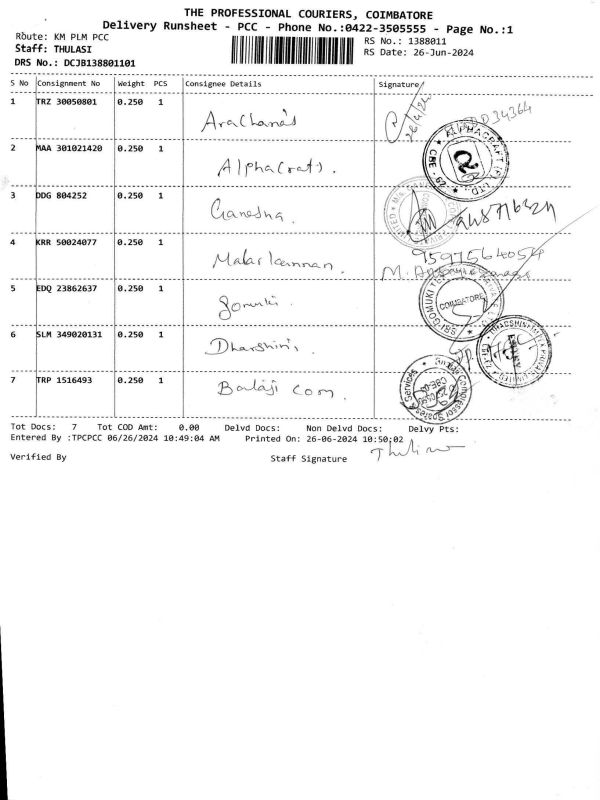 THE PROFESSIONAL COURIERS, COIMBATORE
Delivery Runsheet - PCC - Phone No.:0422-3505555 - Page No.:1
Route: KM PLM PCC
RS No.: 1388011
Staff: THULASI
RS Date: 26-Jun-2024
DRS No.: DCJB138801101
S No Consignment No Weight PCS Consignee Details Signature
1 TRZ 30050801 0.250 1 Arachana's
2 MAA 301021420 0.250 1 Alphacrafts.
ALPHACRAFT (P) LTD.
CBE - 62
3 DDG 804252 0.250 1 Ganesha.
4 KRR 50024077 0.250 1 Malarkannan.
9597564054
5 EDQ 23862637 0.250 1 Gomuki.
COIMBATORE
6 SLM 349020131 0.250 1 Dharshini's.
7 TRP 1516493 0.250 1 Balaji Com.
Tot Docs: 7 Tot COD Amt: 0.00 Delvd Docs: Non Delvd Docs: Delvy Pts:
Entered By :TPCPCC 06/26/2024 10:49:04 AM Printed On: 26-06-2024 10:50:02
Verified By Staff Signature